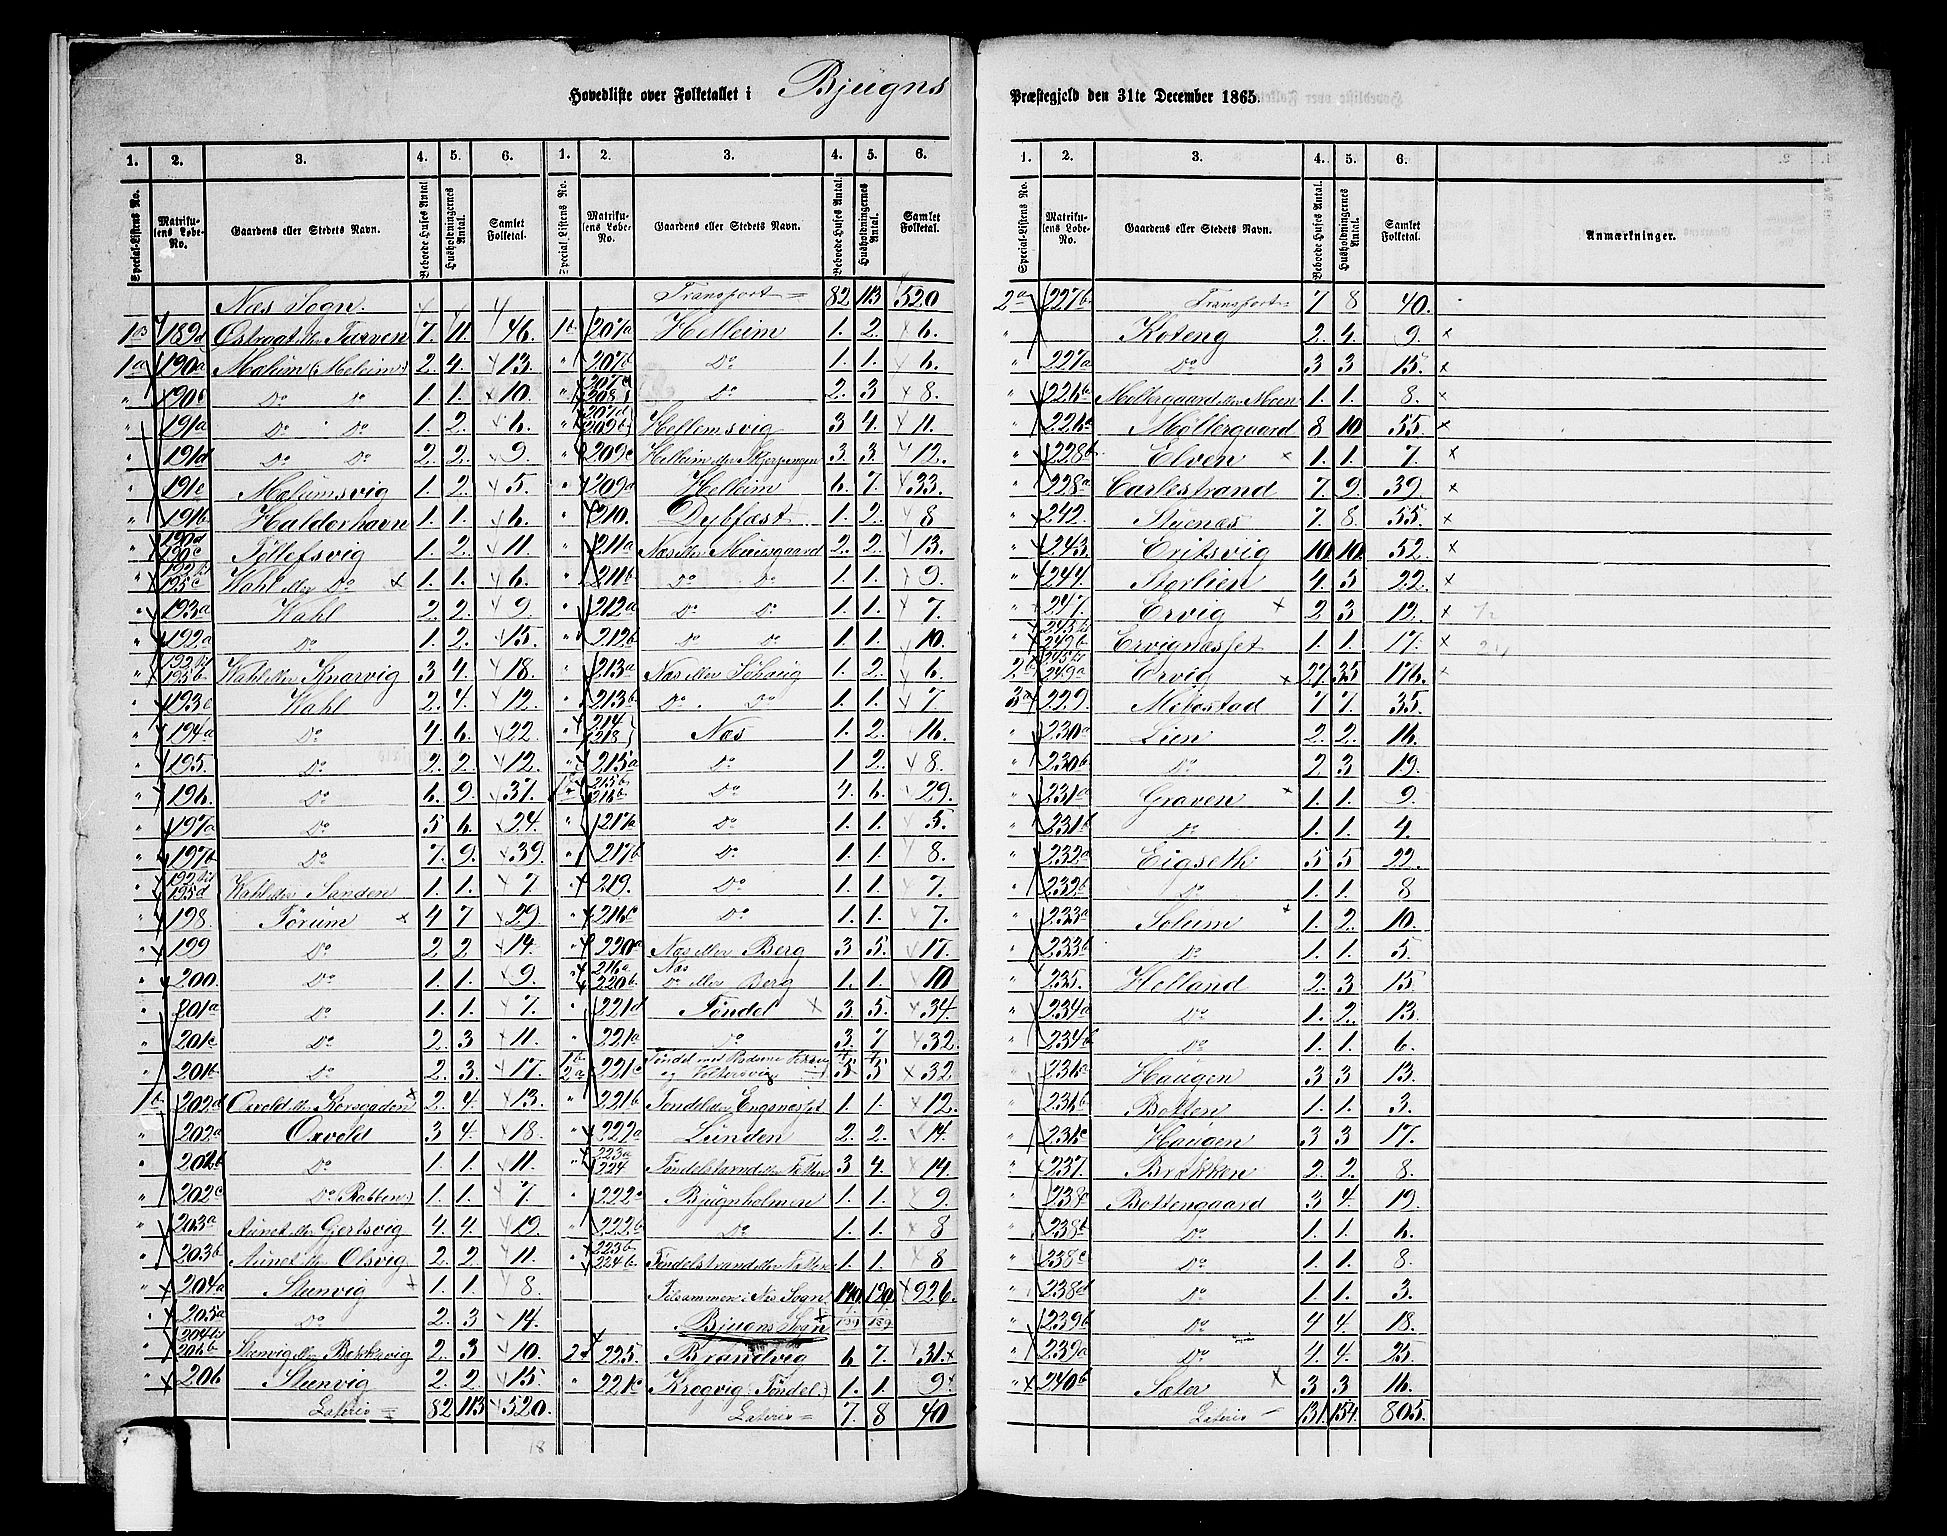 Hovedliste over Folketallet i Bjugns Præstegjeld den 31te December 1865.
1. 2. 3. 4. 5. 6. 1. 2. 3. 4. 5. 6.
Special-Listens No. Matrikulens Løbe-No. Gaardens eller Stedets Navn. Beboede Huses Antal. Husholdningernes Antal. Samlet Folketal. Special Listens No. Matrikulens Løbe-No. Gaardens eller Stedets Navn. Beboede Huses Antal. Husholdningernes Antal. Samlet Folketal.
Næs Sogn.
189d Østraat eller Tusven 7. 11. 46.
1a 190a Mælum (Meleim) 2. 4. 13.
" 190b Do do 1. 1. 10.
" 191a Do Do 1. 2. 6.
" 191d Do Do 2. 2. 9.
" 191c Mælumsvig 1. 2. 5.
" 191b Halderhavn 1. 1. 6.
" 190d 190c Tøllefsvig 1. 2. 11.
" 195c Wahl eller Do 1. 1. 6.
" 193a Wahl 2. 2. 9.
" 192a Do 1. 2. 15.
" 195b Wahl eller Knarvig 3. 4. 18.
" 193c Wahl 2. 4. 12.
" 194a Do 4. 6. 22.
" 195. Do 2. 2. 12.
" 196. Do 6. 9. 37.
" 197a Do 5. 6. 24.
" 197b Do 7. 9. 39.
" 195d Wahl eller Sanden 1. 1. 7.
" 198. Tørum 4 7 29
" 199 Do 2 2 14.
" 200. Do 1. 1. 9.
" 201a Do 1. 1. 7.
" 201c Do 2. 3 11.
" 201b Do 2. 3. 17.
1b 202d Oxvold eller Korsgaden 2. 4. 13.
" 202a Oxvold 3 4. 18.
" 202b Do 1. 1. 11.
" 202c Do (Rabben) 1. 1. 7.
" 203a Aunet eller Gjertsvig 4. 4. 19.
" 203b Aunet eller Olsvig 2. 2. 11.
" 204a Steenvig 1. 1. 8.
" 205a Do 2. 3 14.
" Steenvig eller Bækkevig 2. 3 10.
" 206 Steenvig 2. 2. 15.
Lateris = 82 113 520.
Transport = 82 113 520
1b 207a Helleim 1. 2. 6.
" 207b Do 1. 1. 6.
" 207c 208 Do 2. 3 8.
" 207d 209b Hellemsvig 3 4. 11.
" 209c Helleim eller Skjerpengen 3. 3. 12.
" 209a Helleim 6. 7. 33.
" 210. Dybfæst 1. 2. 8
" 211a Næs eller Muusgaard 2. 2. 13.
" 211b Do Do 1. 1. 9.
" 212a Do Do 1. 1. 7.
" 212b Do Do 1. 1. 10.
" 213a Næs eller Søhavig 1. 2. 6.
" 213b Do Do 1. 1. 7
" 214 218 Næs 1. 2. 16.
" 215a Do 1 2. 8.
215b 216b Do 4. 6. 29.
" 217a Do 1. 1. 5.
" 217b Do 1. 1. 8.
" 219. Do 1. 1. 7.
" 216c Do 1. 1. 7.
" 220a Næs eller Berg 3 5. 17.
" 216a 220b Næs Do eller Berg 1. 1. 10
" 221d Tøndel 3. 5. 34.
" 221a Do 3. 7 32.
1b 2a 221c Tøndel med Pladsene og Volkersvig 5 5 32
" 221b Tøndel eller Engsnæsset 1. 1. 12.
" 227a Lunden 2. 2. 14.
" 223a 224 Tøndelstrand eller Tetten 3 4. 14.
" 222a Bjugnholmen 1. 1. 9.
" 222b Do 1. 1. 8
" 223b 224b Tøndelstrand eller Tetten 1. 1. 8
Tilsammen i Næs Sogn 140. 190. 926.
Bjugns Sogn 139 189
2a 225. Brandvig 6 7. 31.
" 221c Krogvig (Tøndel) 1. 1. 9
Lateris = 7. 8 40
1. 2. 3. 4. 5. 6.
Special-Listens No. Matrikulens Løbe-No. Gaardens eller Stedets Navn. Beboede Huses Antal. Husholdningernes Antal. Samlet Folketal. Anmærkninger.
2a 227b Transport = 7 8 40.
" Koteng 2. 4. 9. x
" 227a Do 3 3 15. x
" 226b Møllergaard eller Moen 1. 1. 8. x
" 226a Møllergaard 8 10 55. x
" 228b Elven 1. 1. 7. x
" 228a Carlestrand 7. 9. 39. x
" 242. Stuenæs 7. 8. 55. x
" 243. Eriksvig 10. 10. 52. x
" 244. Storlien 4. 5 22. x
" 247. Ervig 2 3 12. x
" 249b Ervignæsset 1. 1. 17. x
2b 249a Ervig 27. 35. 176. x
3a 229 Mebostad 7 7. 35.
" 230a Lien 2. 2. 16.
" 230b Do 2 3 19.
" 231a Graven 1. 1. 9.
" 231b Do 1. 1. 4.
" 232a Eigseth 5 5 22.
" 232b Do 1. 1. 8
" 233a Solum 1. 2. 10.
" 233b Do 1. 1. 5.
" 235. Holland 2. 3 15.
" 234a Do 1. 2. 13.
" 234b Do 1. 1. 6.
" 236a Haugen 3 3 13.
" 236b Botten 1. 1. 3.
" 236c Haugen 3 3 17.
" 237. Brækken 2. 2. 8.
" 238a Bottengaard 3 4. 19.
" 238b Do 1. 1. 6.
" 238c Do 1. 1. 8.
" 238d Do 1. 1. 3.
" 239b Do 4 4. 18.
" 239a Do 4. 4. 25.
" 240b Sæter 3 3 16.
Lateris = 131. 154. 805.
18